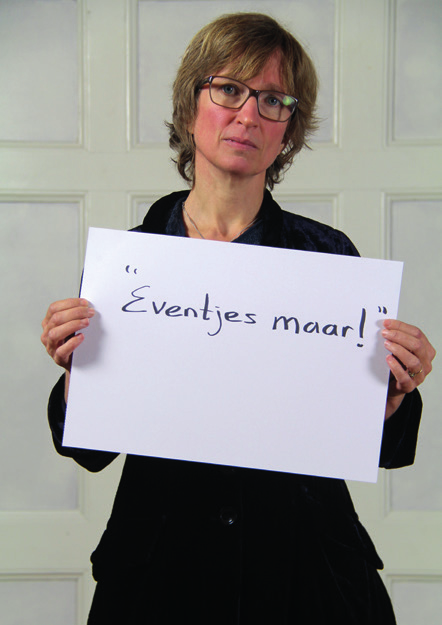 "Eventjes maar!"